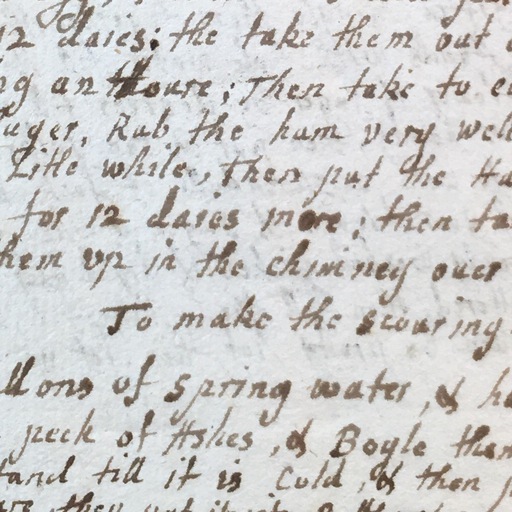 12 daies; the take them out
ng an houre; Then take to
uger, Rub the ham very wel
Litle while, Then put the Ha
for 12 daies more; then ta
hem up in the chimney over
To make the scouring
llons of spring water, & ha
peck of Ashes, & Boyle them
tand till it is Cold, & then